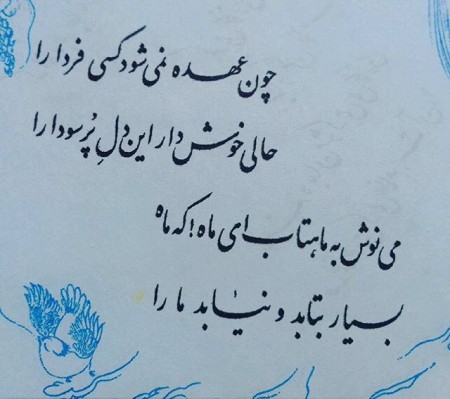 چون عهده نمی شود کسی فردا را
حالی خوش دار این دلِ پُرسودا را
می نوش به ماهتاب ای ماه! که ماه
بسیار بتابد و نیابد ما را